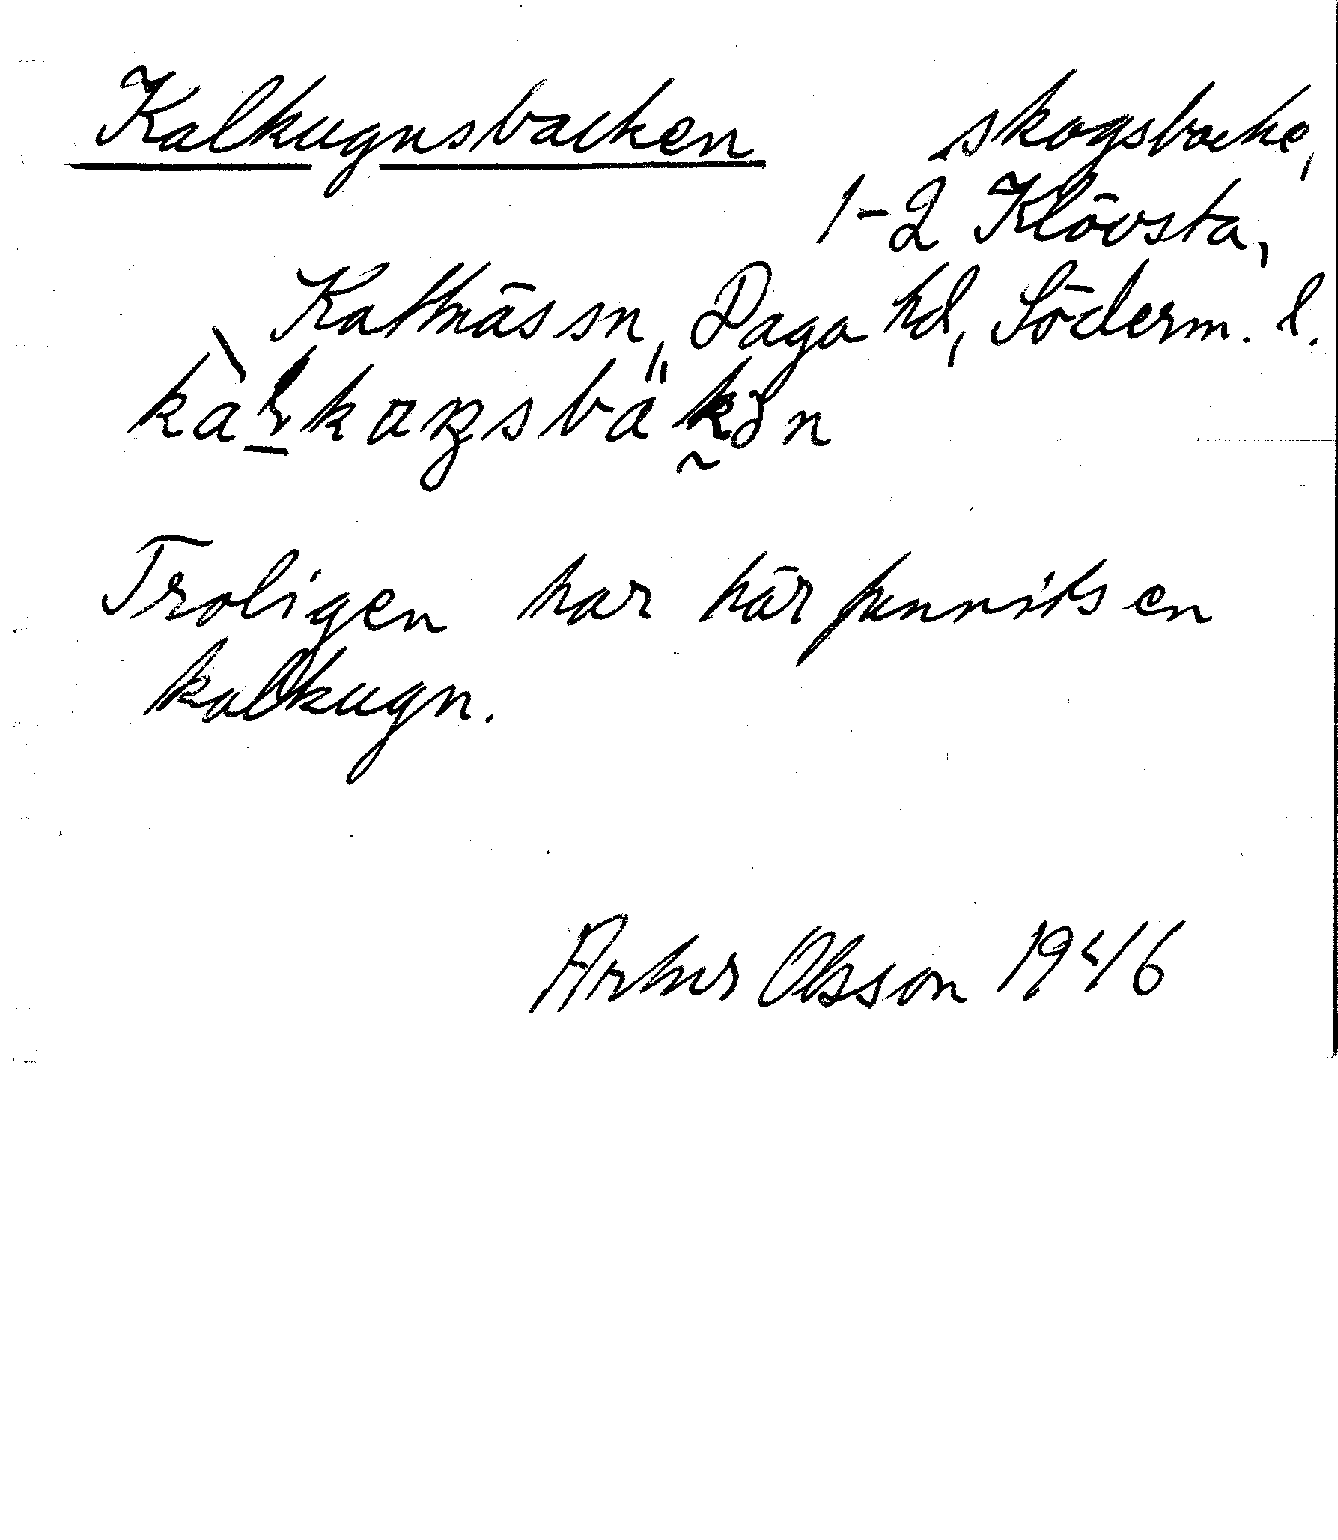 Kalkugnsbacken skogsbacke,
1-2 Klövsta,
Kattnäs sn, Daga hd, Söderm. l.
Troligen har här funnits en
kalkugn.
Arthur Olsson 1946